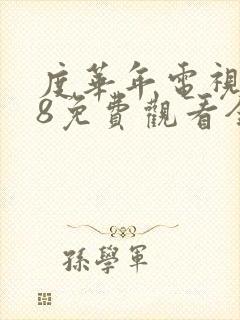 度華年電視
8免費觀看全
孫學軍